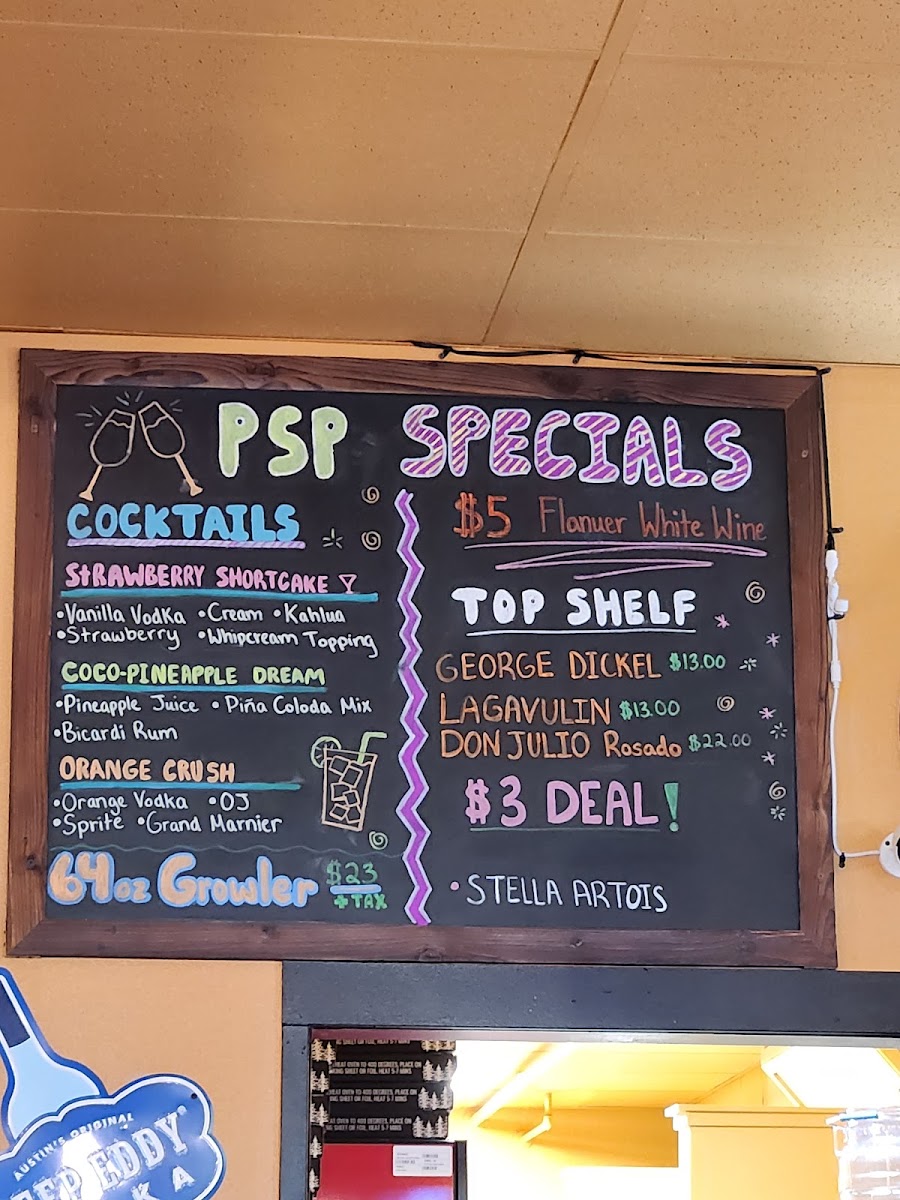 PSP SPECIALS
COCKTAILS
STRAWBERRY SHORTCAKE
•Vanilla Vodka •Cream •Kahlua
•Strawberry •Whipcream Topping
COCO-PINEAPPLE DREAM
•Pineapple Juice •Piña Coloda Mix
•Bicardi Rum
ORANGE CRUSH
•Orange Vodka •OJ
•Sprite •Grand Marnier
64oz Growler $23
+TAX
$5 Flanuer White Wine
TOP SHELF
GEORGE DICKEL $13.00
LAGAVULIN $13.00
DON JULIO Rosado $22.00
$3 DEAL!
•STELLA ARTOIS
AUSTIN'S ORIGINAL
EEP EDDY
KA
HEAT OVEN TO 400 DEGREES, PLACE ON
KING SHEET OR FOIL, HEAT 5-7 MINS